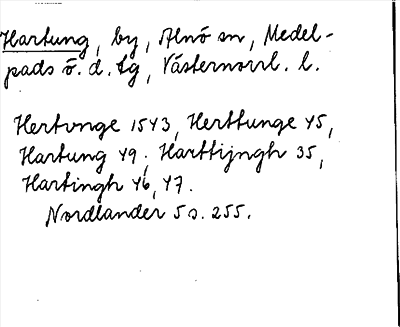 Hartung, by, Alnö sn, Medel-
pads ö. d. tg, Västernorrl. l.
Hertvnge 1543, Herttunge 45,
Hartung 49, Harttijngh 35,
Hartingh 46, 47.
Nordlander 5 s. 255.